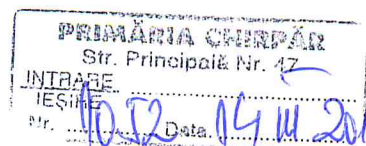 PRIMĂRIA CHIRPĂR
Str. Principală Nr. 47
INTRARE
IEȘIRE
Nr. 1052 Data 14 III 20